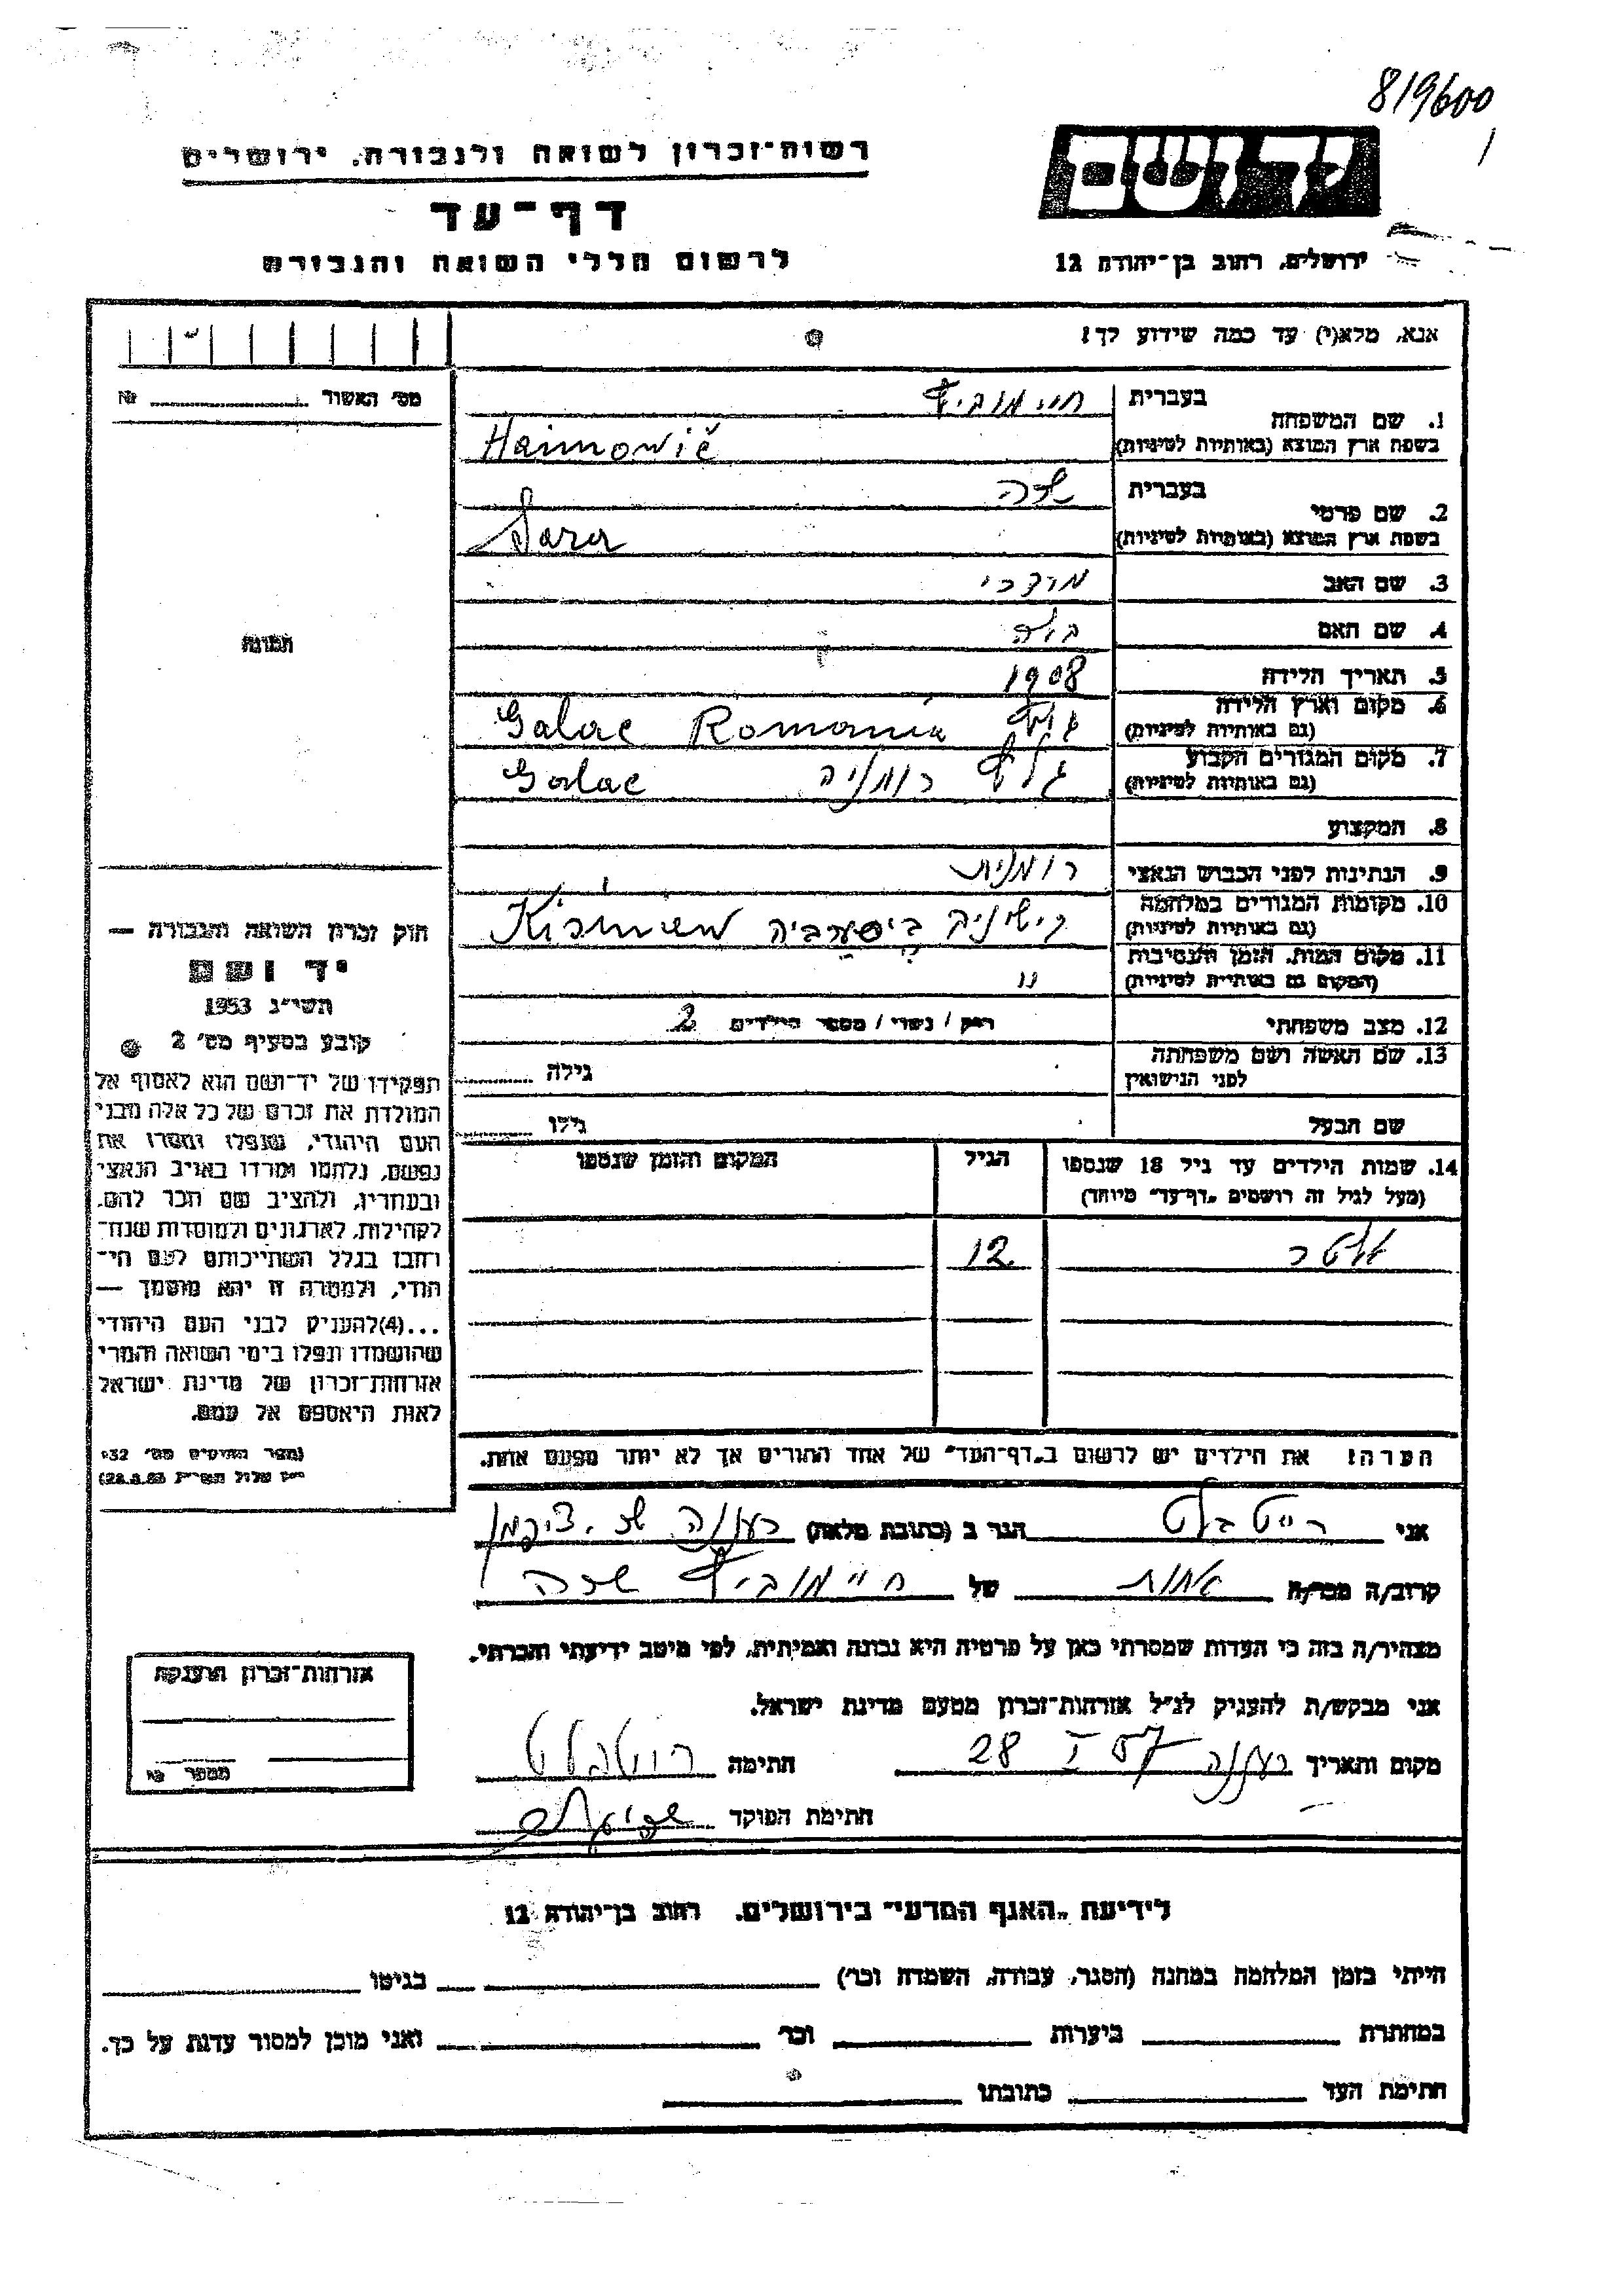 819600
רשות־זכרון לשואה ולגבורה, ירושלים
יד ושם
דף־עד
לרשום חללי השואה והגבורה
ירושלים, רחוב בן־יהודה 12
אנא, מלא(י) עד כמה שידוע לך!
מס׳ האשור № 
1. שם המשפחה בעברית חיימוביץ
בשפת ארץ המוצא (באותיות לטיניות) Haimowič
2. שם פרטי בעברית שרה
בשפת ארץ המוצא (באותיות לטיניות) Sara
3. שם האב מרדכי
4. שם האם
תמונה
5. תאריך הלידה 1908
6. מקום וארץ הלידה
(גם באותיות לטיניות) Galac Romania
7. מקום המגורים הקבוע
(גם באותיות לטיניות) גלץ רומניה Galac
8. המקצוע
9. הנתינות לפני הכבוש הנאצי רומנית
10. מקומות המגורים במלחמה
(גם באותיות לטיניות) קישינב ביסערביה
11. מקום המות, הזמן והנסיבות
(המקום גם באותיות לטיניות) "
12. מצב משפחתי רווק / נשוי / מספר הילדים 2
13. שם האשה ושם משפחתה
לפני הנישואין גילה
שם הבעל גילו
14. שמות הילדים עד גיל 18 שנספו הגיל המקום והזמן שנספו
(מעל לגיל זה רושמים "דף־עד" מיוחד)
12
הערה: את הילדים יש לרשום ב"דף־העד" של אחד ההורים אך לא יותר מפעם אחת.
חוק זכרון השואה והגבורה —
יד ושם
תשי״ג 1953
קובע בסעיף מס׳ 2
תפקידו של יד־ושם הוא לאסוף אל
המולדת את זכרם של כל אלה מבני
העם היהודי, שנפלו ומסרו את
נפשם, נלחמו ומרדו באויב הנאצי
ובעוזריו, ולהציב שם וזכר להם,
לקהילות, לארגונים ולמוסדות שנח־
רבו בגלל השתייכותם לעם הי־
הודי, ולמטרה זו יהא מוסמך —
...(4)להעניק לבני העם היהודי
שהושמדו ונפלו בימי השואה והמרי
אזרחות־זכרון של מדינת ישראל
לאות היאספם אל עמם.
(ספר החוקים מס׳ 132
י״ז אלול תשי״ג 28.8.53)
אני רייטבלט הגר ב (כתובת מלאה) רעננה
קרוב/ה מכר/ה אחות של חיימוביץ שרה
מצהיר/ה בזה כי העדות שמסרתי כאן על פרטיה היא נכונה ואמיתית, לפי מיטב ידיעתי והכרתי.
אני מבקש/ת להעניק לנ״ל אזרחות־זכרון מטעם מדינת ישראל.
מקום ותאריך רעננה 28 I 57 חתימה רויטבלט
חתימת הפוקד
אזרחות־זכרון הוענקה
מספר
לידיעת "האגף המדעי" בירושלים, רחוב בן־יהודה 12
הייתי בזמן המלחמה במחנה (הסגר, עבודה, השמדה וכו׳) בגיטו
במחתרת ביערות וכו׳ ואני מוכן למסור עדות על כך.
חתימת העד כתובתו